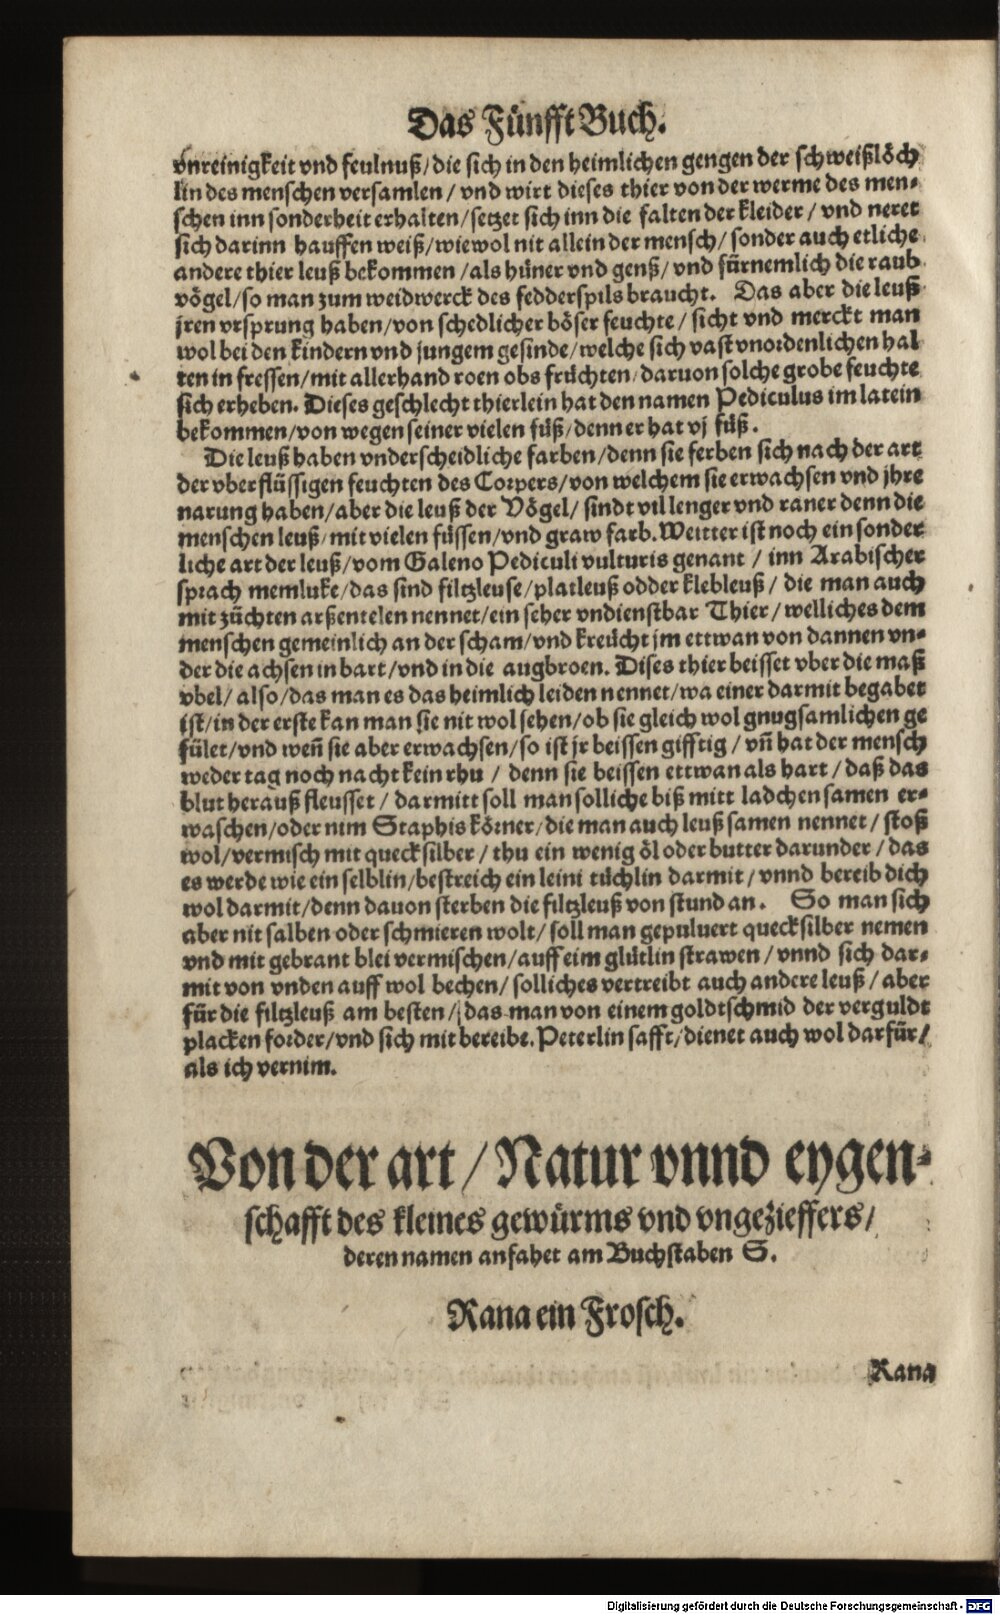 Das Fünfft Buch.
vnreinigkeit vnd feulnuß/die sich in den heimlichen gengen der schweißlöch
lin des menschen versamlen/ vnd wirt dieses thier von der werme des men-
schen inn sonderheit erhalten/setzet sich inn die falten der kleider/ vnd neret
sich darinn hauffen weiß/wiewol nit allein der mensch/ sonder auch etliche
andere thier leuß bekommen/als hüner vnd genß/ vnd fürnemlich die raub
vögel/so man zum weidwerck des fedderspils braucht. Das aber die leuß
jren vrsprung haben/von schedlicher böser feuchte/ sicht vnd merckt man
wol bei den kindern vnd jungem gesinde/welche sich vast vnordenlichen hal
ten in fressen/mit allerhand roen obs früchten/daruon solche grobe feuchte
sich erheben. Dieses geschlecht thierlein hat den namen Pediculus im latein
bekommen/von wegen seiner vielen füß/denn er hat vj füß.
Die leuß haben vnderscheidliche farben/denn sie ferben sich nach der art
der vberflüssigen feuchten des Corpers/von welchem sie erwachsen vnd jhre
narung haben/aber die leuß der Vögel/ sindt vil lenger vnd raner denn die
menschen leuß/mit vielen füssen/vnd graw farb. Weitter ist noch ein sonder
liche art der leuß/vom Galeno Pediculi vulturis genant/ inn Arabischer
sprach memluke/das sind filtzleuse/platleuß odder klebleuß/ die man auch
mit züchten arßentelen nennet/ein seher vndienstbar Thier/welliches dem
menschen gemeinlich an der scham/vnd kreücht jm ettwan von dannen vn-
der die achsen in bart/vnd in die augbroen. Dises thier beisset vber die maß
vbel/also/das man es das heimlich leiden nennet/wa einer darmit begabet
ist/in der erste kan man sie nit wol sehen/ob sie gleich wol gnugsamlichen ge
fület/vnd weñ sie aber erwachsen/so ist jr beissen gifftig/ vñ hat der mensch
weder tag noch nacht kein rhu/ denn sie beissen ettwan als hart/daß das
blut herauß fleusset/ darmitt soll man solliche biß mitt ladchen samen er-
waschen/oder nim Staphis körner/die man auch leuß samen nennet/ stoß
wol/vermisch mit quecksilber/ thu ein wenig öl oder butter darunder/das
es werde wie ein selblin/bestreich ein leini tüchlin darmit/vnnd bereib dich
wol darmit/denn dauon sterben die filtzleuß von stund an. So man sich
aber nit salben oder schmieren wolt/soll man gepuluert quecksilber nemen
vnd mit gebrant blei vermischen/auff eim glütlin strawen/vnnd sich dar-
mit von vnden auff wol bechen/solliches vertreibt auch andere leuß/aber
für die filtzleuß am besten/das man von einem goldtschmid der verguldt
placken forder/vnd sich mit bereibe. Peterlin safft/dienet auch wol darfür/
als ich vernim.
Von der art/Natur vnnd eygen-
schafft des kleines gewürms vnd vngezieffers/
deren namen anfahet am Buchstaben S.
Rana ein Frosch.
Rana
Digitalisierung gefördert durch die Deutsche Forschungsgemeinschaft - DFG